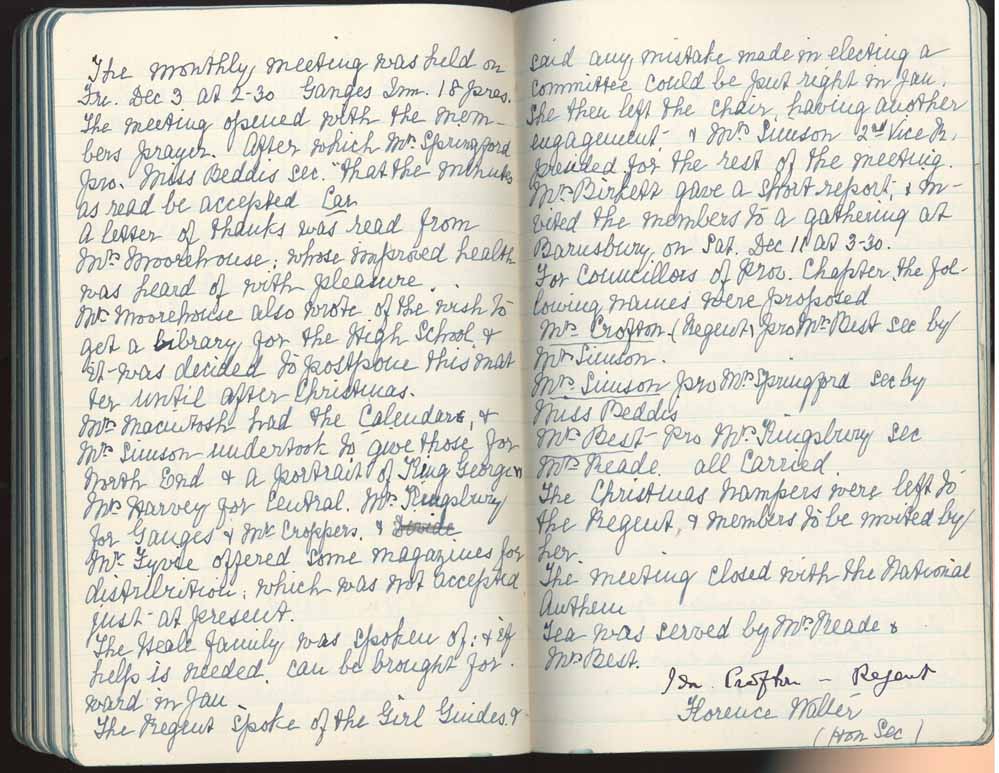 The monthly meeting was held on
Fri. Dec 3 at 2-30 Ganges Inn. 18 pres.
The meeting opened with the mem-
bers prayer. After which Mrs Springford
pro. Miss Beddis sec. "that the minutes
as read be accepted Car
A letter of thanks was read from
Mrs Moorehouse; whose improved health
was heard of with pleasure.
Mrs Moorehouse also wrote of the wish to
get a library for the High School, &
it was decided to postpone this mat
ter until after Christmas.
Mrs Macintosh had the Calendars, &
Mrs Simson undertook to give those for
North End & a portrait of King George VI
Mrs Harvey for Central. Mrs Kingsbury
for Ganges & Mr Croppers. &
Mrs Fyvie offered some magazines for
distribution; which was not accepted
just at present.
The Heal family was spoken of; & if
help is needed. can be brought for
ward in Jan
The Regent spoke of the Girl Guides. &
said any mistake made in electing a
committee could be put right in Jan.
She then left the chair, having another
engagement, & Mrs Simson 2nd Vice R.
presided for the rest of the meeting.
Mrs Birkett gave a short report, & in-
vited the members to a gathering at
Barnsbury, on Sat. Dec 11 at 3-30.
For Councillors of Prov. Chapter, the fol-
lowing names were proposed
Mrs Crofton (Regent) pro Mrs Best sec by
Mrs Simson.
Mrs Simson pro Mrs Springford sec by
Miss Beddis
Mrs Best pro Mrs Kingsbury sec
Mrs Reade. all Carried.
The Christmas hampers were left to
the Regent, & members to be invited by
her.
The meeting closed with the National
Anthem
Tea was served by Mrs Reade &
Mrs Best.
Crofton – Regent
Florence Walter
(Hon Sec)